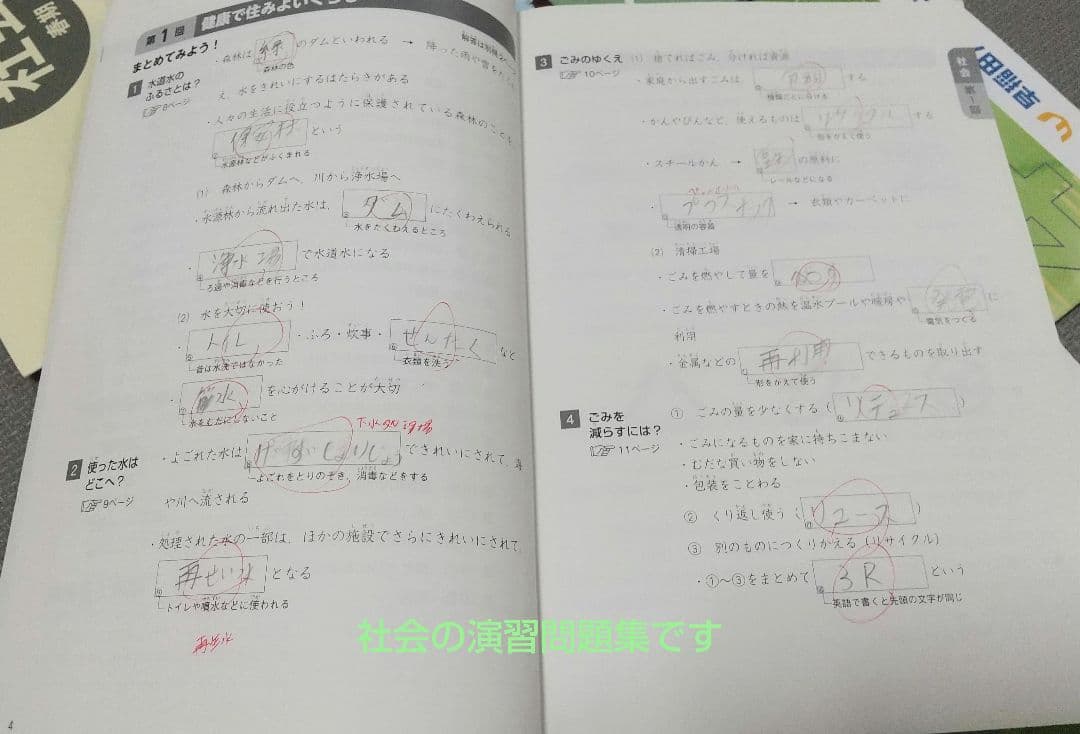 社会
春期
第1回 健康で住みよいくらし
まとめてみよう!
・森林は 緑 のダムといわれる → 降った雨や雪をたく
森林の色
1 水道水のふるさとは?
8ページ
え、水をきれいにするはたらきがある
・人々の生活に役立つように保護されている森林のことを
保安林 という
水源林などがふくまれる
(1) 森林からダムへ、川から浄水場へ
・水源林から流れ出た水は、 ダム にたくわえられる
水をたくわえるところ
・ 浄水場 で水道水になる
ろ過や消毒などを行うところ
(2) 水を大切に使おう!
・ トイレ ・ふろ・炊事・ せんたく など
昔は水洗ではなかった
衣類を洗う
・ 節水 を心がけることが大切
水をむだにしないこと
下水処理場
2 使った水はどこへ?
9ページ
・よごれた水は げすいしょりじょう できれいにされて、海
よごれをとりのぞき、消毒などをする
や川へ流される
・処理された水の一部は、ほかの施設でさらにきれいにされて、
再せい水 となる
トイレや噴水などに使われる
再生水
4
3 ごみのゆくえ
10ページ
(1) 捨てればごみ、分ければ資源
・家庭から出すごみは、 分別 する
種類ごとに分ける
・かんやびんなど、使えるものは リサイクル する
形をかえて使う
・スチールかん → の原料に
レールなどになる
ペットボトル
・ → 衣類やカーペットに
透明の容器
(2) 清掃工場
・ごみを燃やして量を
・ごみを燃やすときの熱を温水プールや暖房や 発電 に
電気をつくる
利用
・金属などの 再利用 できるものを取り出す
形をかえて使う
4 ごみを減らすには?
11ページ
① ごみの量を少なくする( リデュース )
・ごみになるものを家に持ちこまない
・むだな買い物をしない
・包装をことわる
② くり返し使う( リユース )
③ 別のものにつくりかえる(リサイクル)
・①~③をまとめて 3R という
英語で書くと先頭の文字が同じ
社会 第1回
早稲田
社会の演習問題集です